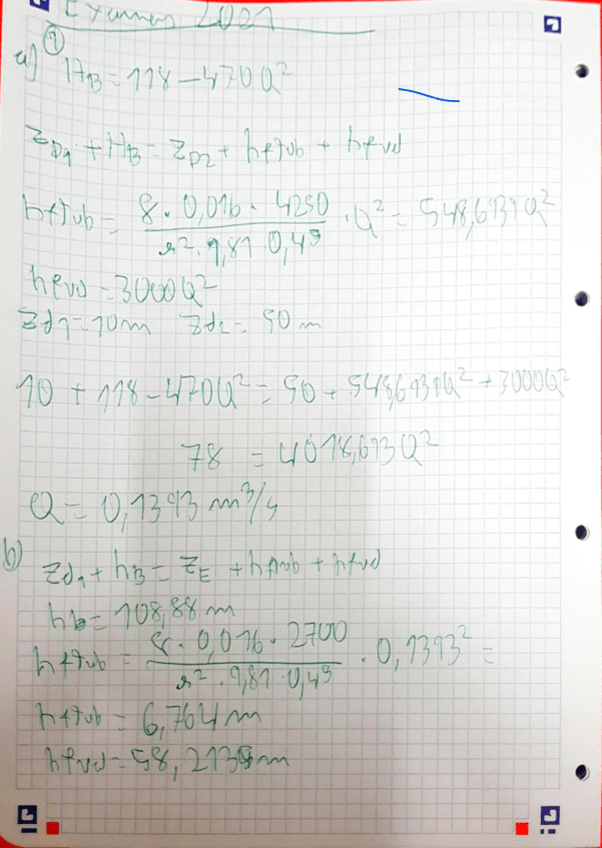 Examen 2021
①
a) HB = 118 - 470Q²
zD1 + HB = zD2 + hftub + hfvd
hftub = 8 · 0,016 · 4250 / π² · 9,81 · 0,4⁵ · Q² = 548,6931Q²
hfvd = 3000Q²
zd1 = 10m zd2 = 50 m
10 + 118 - 470Q² = 50 + 548,6931Q² + 3000Q²
78 = 4018,693Q²
Q = 0,1393 m³/s
b)
zd1 + hB = zE + hftub + hfvd
hb = 108,88 m
hftub = 8 · 0,016 · 2700 / π² · 9,81 · 0,4⁵ · 0,1393² =
hftub = 6,764 m
hfvd = 58,2135m